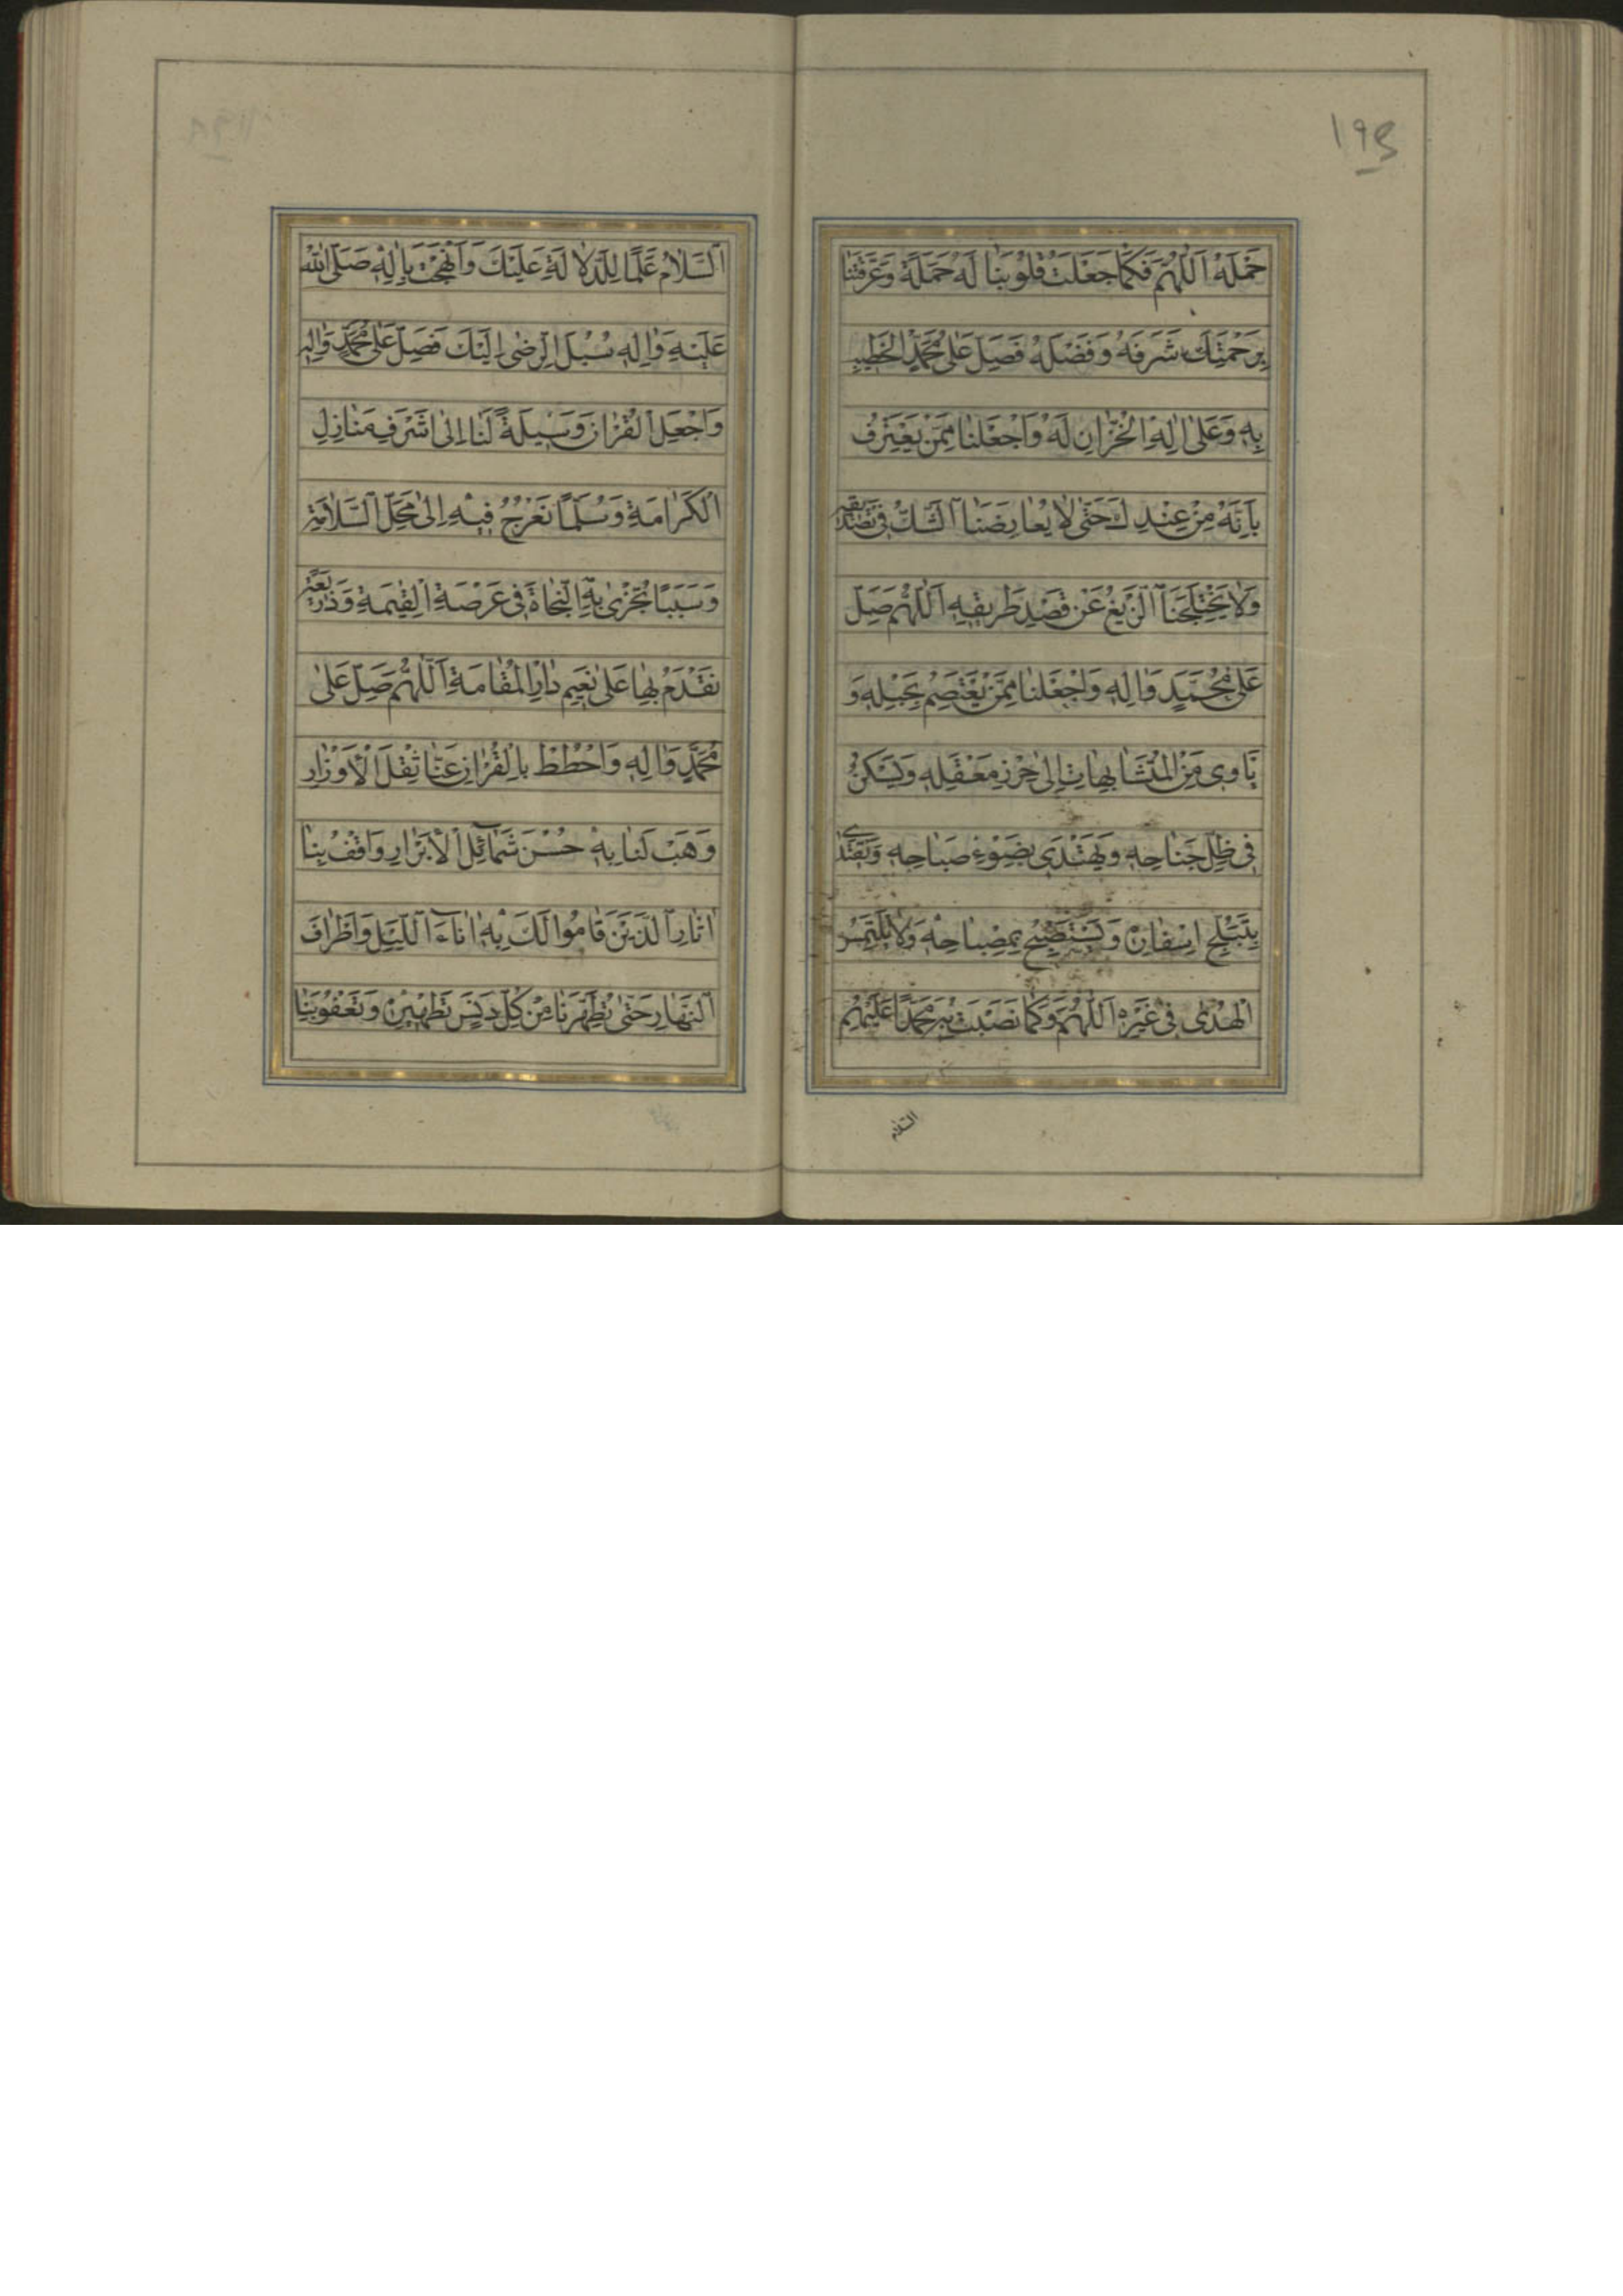 ١٩٤
حَمْلَهُ اَللّٰهُمَّ فَكَمٰا جَعَلْتَ قُلُوبَنٰا لَهُ حَمَلَةً وَعَرَّفْتَنٰا
بِرَحْمَتِكَ شَرَفَهُ وَفَضْلَهُ فَصَلِّ عَلىٰ مُحَمَّدٍ الْخَطِيبِ
بِهِ وَعَلىٰ اٰلِهِ الْخُزّٰانِ لَهُ وَاجْعَلْنٰا مِمَّنْ يَعْتَرِفُ
بِاَنَّهُ مِنْ عِنْدِكَ حَتّىٰ لاٰ يُعٰارِضَنَا الشَّكُّ فِى تَصْدِيقِهِ
وَلاٰ يَخْتَلِجَنَا الزَّيْغُ عَنْ قَصْدِ طَرِيقِهِ اَللّٰهُمَّ صَلِّ
عَلىٰ مُحَمَّدٍ وَاٰلِهِ وَاجْعَلْنٰا مِمَّنْ يَعْتَصِمُ بِحَبْلِهِ وَ
يَأْوِى مِنَ الْمُتَشٰابِهٰاتِ اِلىٰ حِرْزِ مَعْقِلِهِ وَيَسْكُنُ
فِى ظِلِّ جَنٰاحِهِ وَيَهْتَدِى بِضَوْءِ صَبٰاحِهِ وَيَقْتَدِى
بِتَبَلُّجِ اِسْفٰارِهِ وَيَسْتَصْبِحُ بِمِصْبٰاحِهِ وَلاٰ يَلْتَمِسُ
الْهُدىٰ فِى غَيْرِهِ اَللّٰهُمَّ وَكَمٰا نَصَبْتَ بِهِ مُحَمَّدًا عَلَيْهِمُ
السَّلاٰم
السَّلاٰمُ عَلَمًا لِلدَّلاٰلَةِ عَلَيْكَ وَاَنْهَجْتَ بِاٰلِهِ صَلَّى اللّٰهُ
عَلَيْهِ وَاٰلِهِ سُبُلَ الرِّضىٰ اِلَيْكَ فَصَلِّ عَلىٰ مُحَمَّدٍ وَاٰلِهِ
وَاجْعَلِ الْقُرْاٰنَ وَسِيلَةً لَنٰا اِلىٰ اَشْرَفِ مَنٰازِلِ
الْكَرٰامَةِ وَسُلَّمًا نَعْرُجُ فِيهِ اِلىٰ مَحَلِّ السَّلاٰمَةِ
وَسَبَبًا نُجْزىٰ بِهِ النَّجٰاةَ فِى عَرْصَةِ الْقِيٰمَةِ وَذَرِيعَةً
نَقْدَمُ بِهٰا عَلىٰ نَعِيمِ دٰارِ الْمُقٰامَةِ اَللّٰهُمَّ صَلِّ عَلىٰ
مُحَمَّدٍ وَاٰلِهِ وَاحْطُطْ بِالْقُرْاٰنِ عَنّٰا ثِقْلَ الْاَوْزٰارِ
وَهَبْ لَنٰا بِهِ حُسْنَ شَمٰائِلِ الْاَبْرٰارِ وَاقْفُ بِنٰا
اٰثٰارَ الَّذِينَ قٰامُوا لَكَ بِهِ اٰنٰاءَ اللَّيْلِ وَاَطْرٰافَ
النَّهٰارِ حَتّىٰ تُطَهِّرَنٰا مِنْ كُلِّ دَنَسٍ بِتَطْهِيرِهِ وَتَقْفُوَ بِنٰا